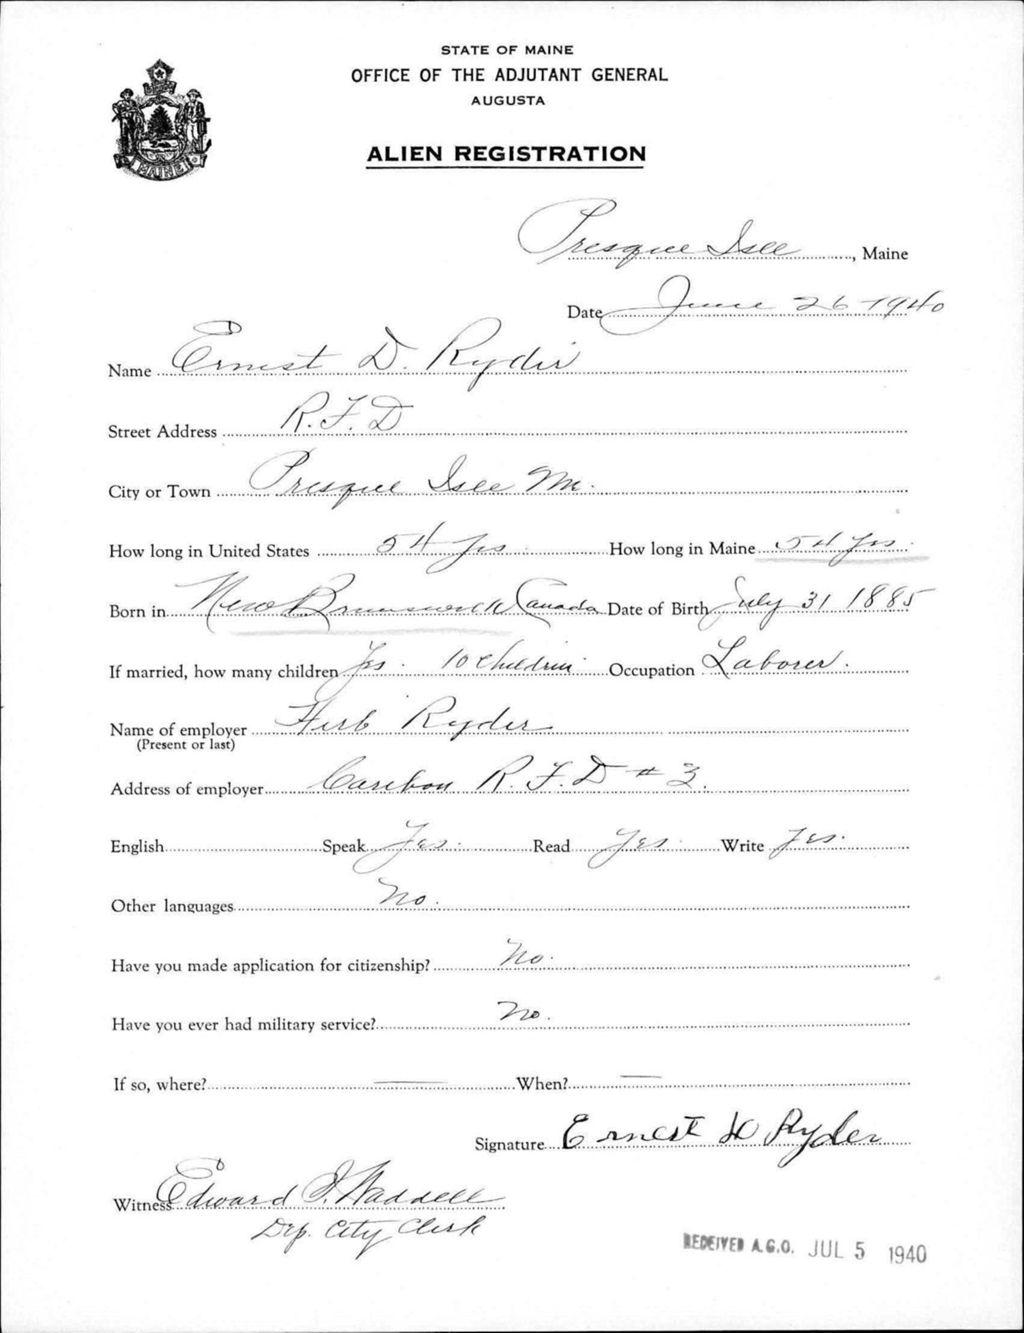 STATE OF MAINE
OFFICE OF THE ADJUTANT GENERAL
AUGUSTA
ALIEN REGISTRATION
MAINE
Presque Isle, Maine
Date June 26-1940
Name Ernest D. Ryder
Street Address R.F.D
City or Town Presque Isle Me.
How long in United States 54 yrs How long in Maine 54 yrs.
Born in New Brunswick Canada Date of Birth July 31 1885
If married, how many children Yes. 10 Children Occupation Laborer.
Name of employer Herb Ryder
(Present or last)
Address of employer Caribou R.F.D #3.
English Speak Yes. Read Yes. Write Yes.
Other languages No.
Have you made application for citizenship? No.
Have you ever had military service? No.
If so, where? — When? —
Signature Ernest D Ryder
Witness Edward J. Waddell
Dep. City Clerk
RECEIVED A.G.O. JUL 5 1940